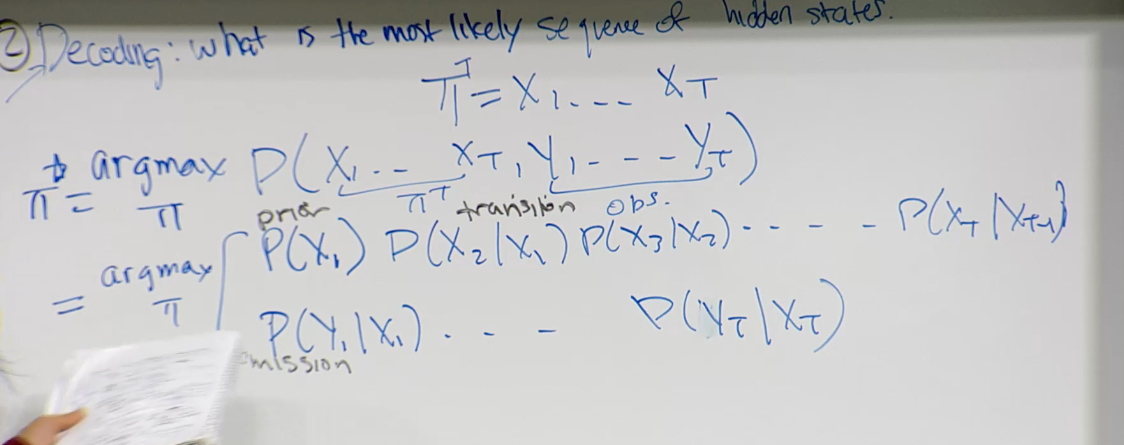 ② Decoding: what is the most likely sequence of hidden states.
π^T = X₁ . . . – – X_T
π* = argmax_π P(X₁ . . – X_T, Y₁ - - - Y_T)
π^T obs.
prior transition
= argmax_π [ P(X₁) P(X₂|X₁) P(X₃|X₂) · · - - - P(X_T|X_{T-1})
P(Y₁|X₁) . - - P(Y_T|X_T)
mission